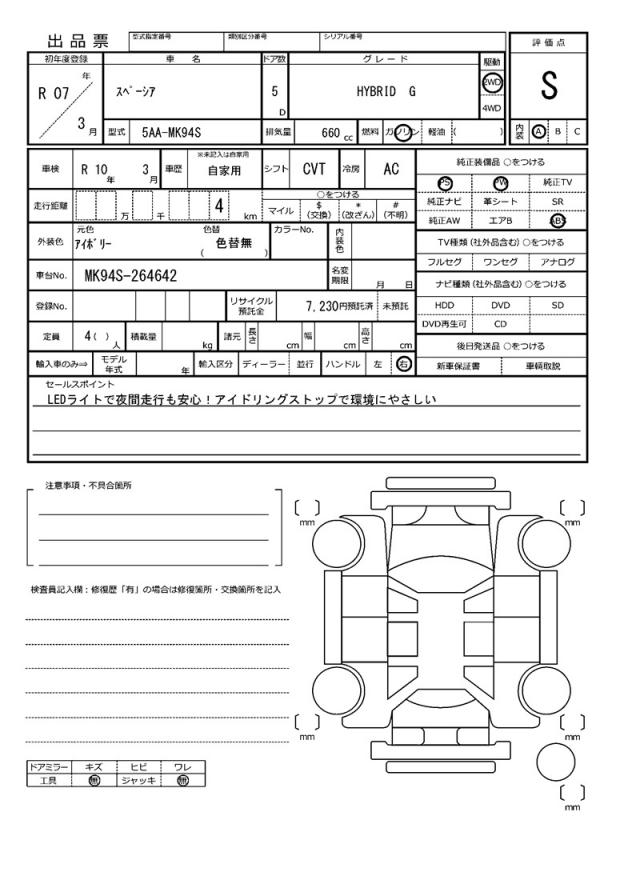 出品票
型式指定番号
類別区分番号
シリアル番号
評価点
初年度登録
車名
ドア数
グレード
駆動
R 07
年
3
月
ｽﾍﾟｰｼｱ
5
D
HYBRID G
2WD
4WD
S
型式
5AA-MK94S
排気量
660
cc
燃料
ガソリン
軽油
(　)
内装
A
B
C
車検
R 10
年
3
月
車歴
※未記入は自家用
自家用
シフト
CVT
冷房
AC
走行距離
万
千
4
km
○をつける
マイル
$
(交換)
*
(改ざん)
#
(不明)
外装色
元色
ｱｲﾎﾞﾘｰ
色替
色替無
(　)
カラーNo.
内装色
車台No.
MK94S-264642
名変期限
月
日
登録No.
リサイクル預託金
7,230円預託済
未預託
定員
4(　)
人
積載量
kg
諸元
長さ
cm
幅
cm
高さ
cm
輸入車のみ⇒
モデル年式
年
輸入区分
ディーラー
並行
ハンドル
左
右
純正装備品 ○をつける
PS
PW
純正TV
純正ナビ
革シート
SR
純正AW
エアB
ABS
TV種類 (社外品含む) ○をつける
フルセグ
ワンセグ
アナログ
ナビ種類 (社外品含む) ○をつける
HDD
DVD
SD
DVD再生可
CD
後日発送品 ○をつける
新車保証書
車輌取説
セールスポイント
LEDライトで夜間走行も安心！アイドリングストップで環境にやさしい
注意事項・不具合箇所
検査員記入欄：修復歴「有」の場合は修復箇所・交換箇所を記入
mm
mm
mm
mm
mm
ドアミラー
キズ
ヒビ
ワレ
工具
無
ジャッキ
無